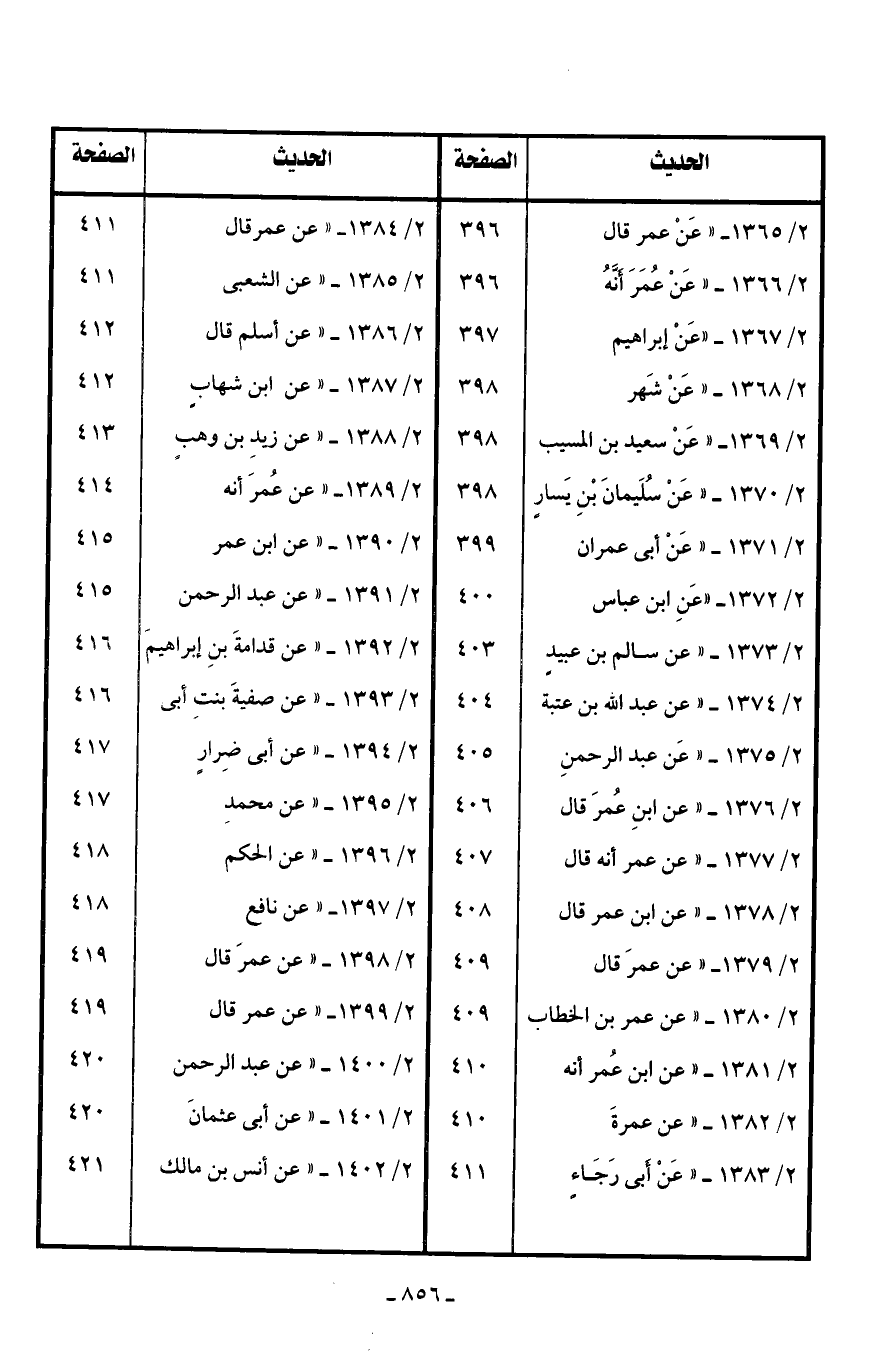 الحديث الصفحة الحديث الصفحة
٢/ ١٣٦٥ـ « عَنْ عمر قال ٣٩٦ ٢/ ١٣٨٤ـ « عن عمرقال ٤١١
٢/ ١٣٦٦ ـ « عَنْ عُمَرَ أَنَّهُ ٣٩٦ ٢/ ١٣٨٥ ـ « عن الشعبى ٤١١
٢/ ١٣٦٧ ـ «عَنْ إبراهيم ٣٩٧ ٢/ ١٣٨٦ ـ « عن أسلم قال ٤١٢
٢/ ١٣٦٨ ـ « عَنْ شَهر ٣٩٨ ٢/ ١٣٨٧ ـ « عن ابن شهابٍ ٤١٢
٢/ ١٣٦٩ـ « عَنْ سعيد بن المسيب ٣٩٨ ٢/ ١٣٨٨ ـ « عن زيدِ بن وهبٍ ٤١٣
٢/ ١٣٧٠ ـ « عَنْ سُلَيمانَ بْنِ يَسارٍ ٣٩٨ ٢/ ١٣٨٩ـ « عن عُمرَ أنه ٤١٤
٢/ ١٣٧١ ـ « عَنْ أبى عمران ٣٩٩ ٢/ ١٣٩٠ ـ « عن ابن عمر ٤١٥
٢/ ١٣٧٢ـ «عَنِ ابن عباس ٤٠٠ ٢/ ١٣٩١ ـ « عن عبد الرحمن ٤١٥
٢/ ١٣٧٣ ـ « عن سالم بن عبيدٍ ٤٠٣ ٢/ ١٣٩٢ ـ « عن قدامةَ بنِ إبراهيمَ ٤١٦
٢/ ١٣٧٤ ـ « عن عبد الله بن عتبة ٤٠٤ ٢/ ١٣٩٣ ـ « عن صفيةَ بنتِ أبى ٤١٦
٢/ ١٣٧٥ ـ « عَن عبد الرحمنِ ٤٠٥ ٢/ ١٣٩٤ ـ « عن أبى ضِرارٍ ٤١٧
٢/ ١٣٧٦ ـ « عن ابنِ عُمرَ قال ٤٠٦ ٢/ ١٣٩٥ ـ « عن محمدِ ٤١٧
٢/ ١٣٧٧ ـ « عن عمر أنه قال ٤٠٧ ٢/ ١٣٩٦ ـ « عن الحكم ٤١٨
٢/ ١٣٧٨ ـ « عن ابن عمر قال ٤٠٨ ٢/ ١٣٩٧ـ « عن نافع ٤١٨
٢/ ١٣٧٩ـ « عن عمرَ قال ٤٠٩ ٢/ ١٣٩٨ ـ « عن عمرَ قال ٤١٩
٢/ ١٣٨٠ ـ « عن عمر بن الخطاب ٤٠٩ ٢/ ١٣٩٩ـ « عن عمر قال ٤١٩
٢/ ١٣٨١ ـ « عن ابن عُمر أنه ٤١٠ ٢/ ١٤٠٠ ـ « عن عبد الرحمن ٤٢٠
٢/ ١٣٨٢ ـ « عن عمرةَ ٤١٠ ٢/ ١٤٠١ ـ « عن أبى عثمانَ ٤٢٠
٢/ ١٣٨٣ ـ « عَنْ أَبى رَجَاءٍ ٤١١ ٢/ ١٤٠٢ ـ « عن أنس بن مالك ٤٢١
ـ ٨٥٦ ـ